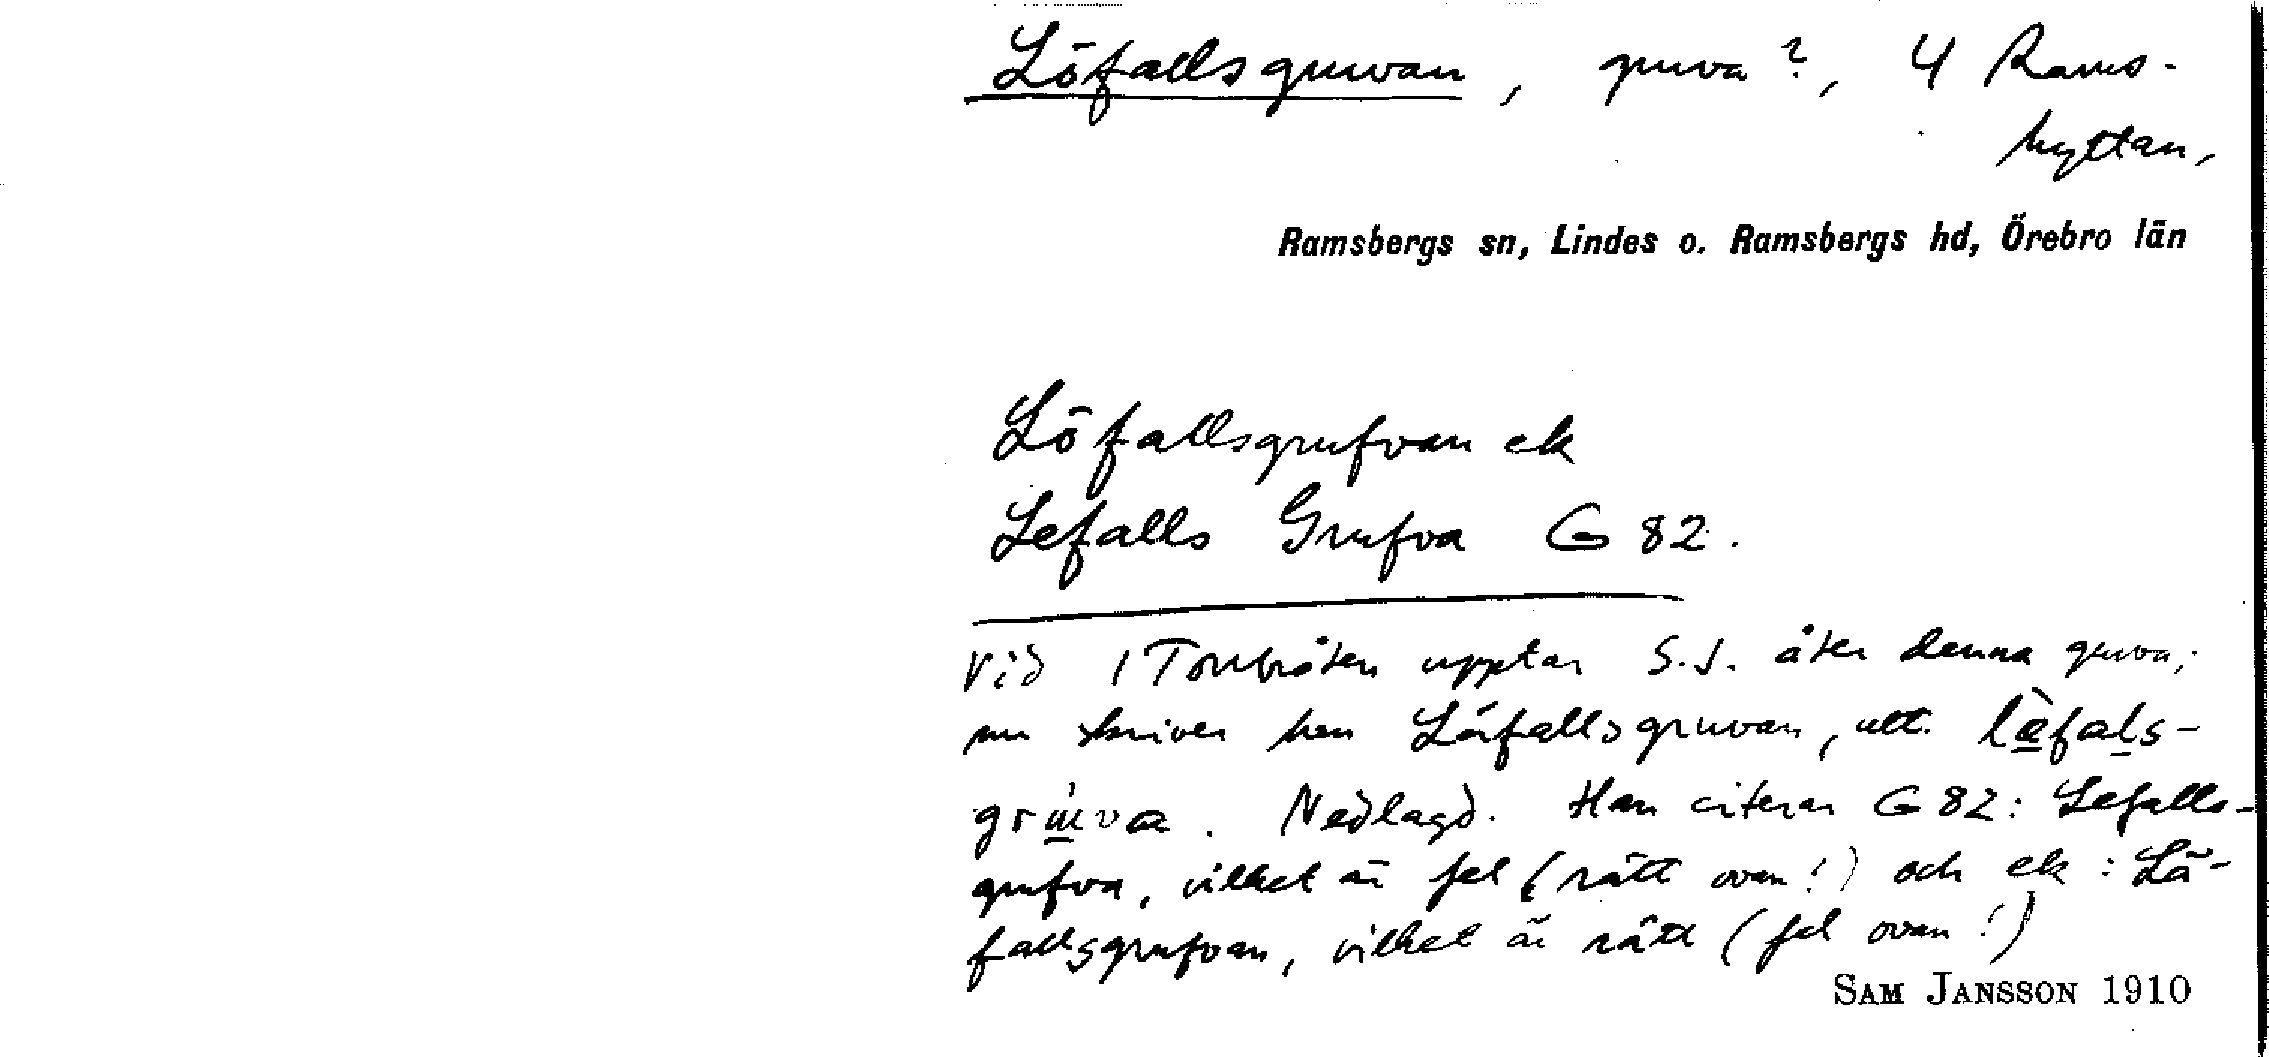 Löfallsgruvan, gruva?, 4 Rams-
hyttan,
Ramsbergs sn, Lindes o. Ramsbergs hd, Örebro län
Löfallsgrufvan ek
Lefalls Grufva G 82.
Vid 1 Torrbråten upptar S.J. åter denna gruva;
nu skriver han Läfallsgruvan, utt. lèfals-
grùva. Nedlagd. Han citerar G 82: Lefalls-
grufva, vilket är fel (rätt ovan!) och ek: Lä-
fallsgrufvan, vilket är rätt (fel ovan!)
SAM JANSSON 1910